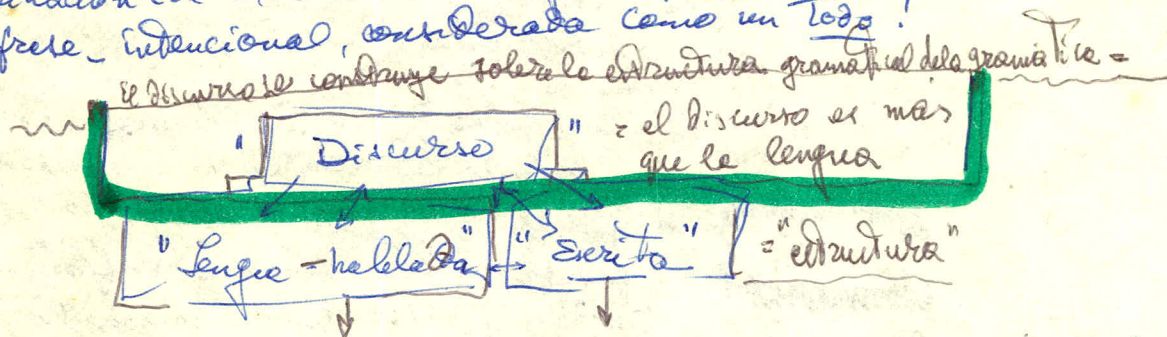 frase_ intencional, considerada como un Todo!
el discurso se construye sobre la estructura gramatical de la gramática =
" Discurso " = el discurso es más
que la lengua
"Lengua - hablada" "Escrita" = "estructura"